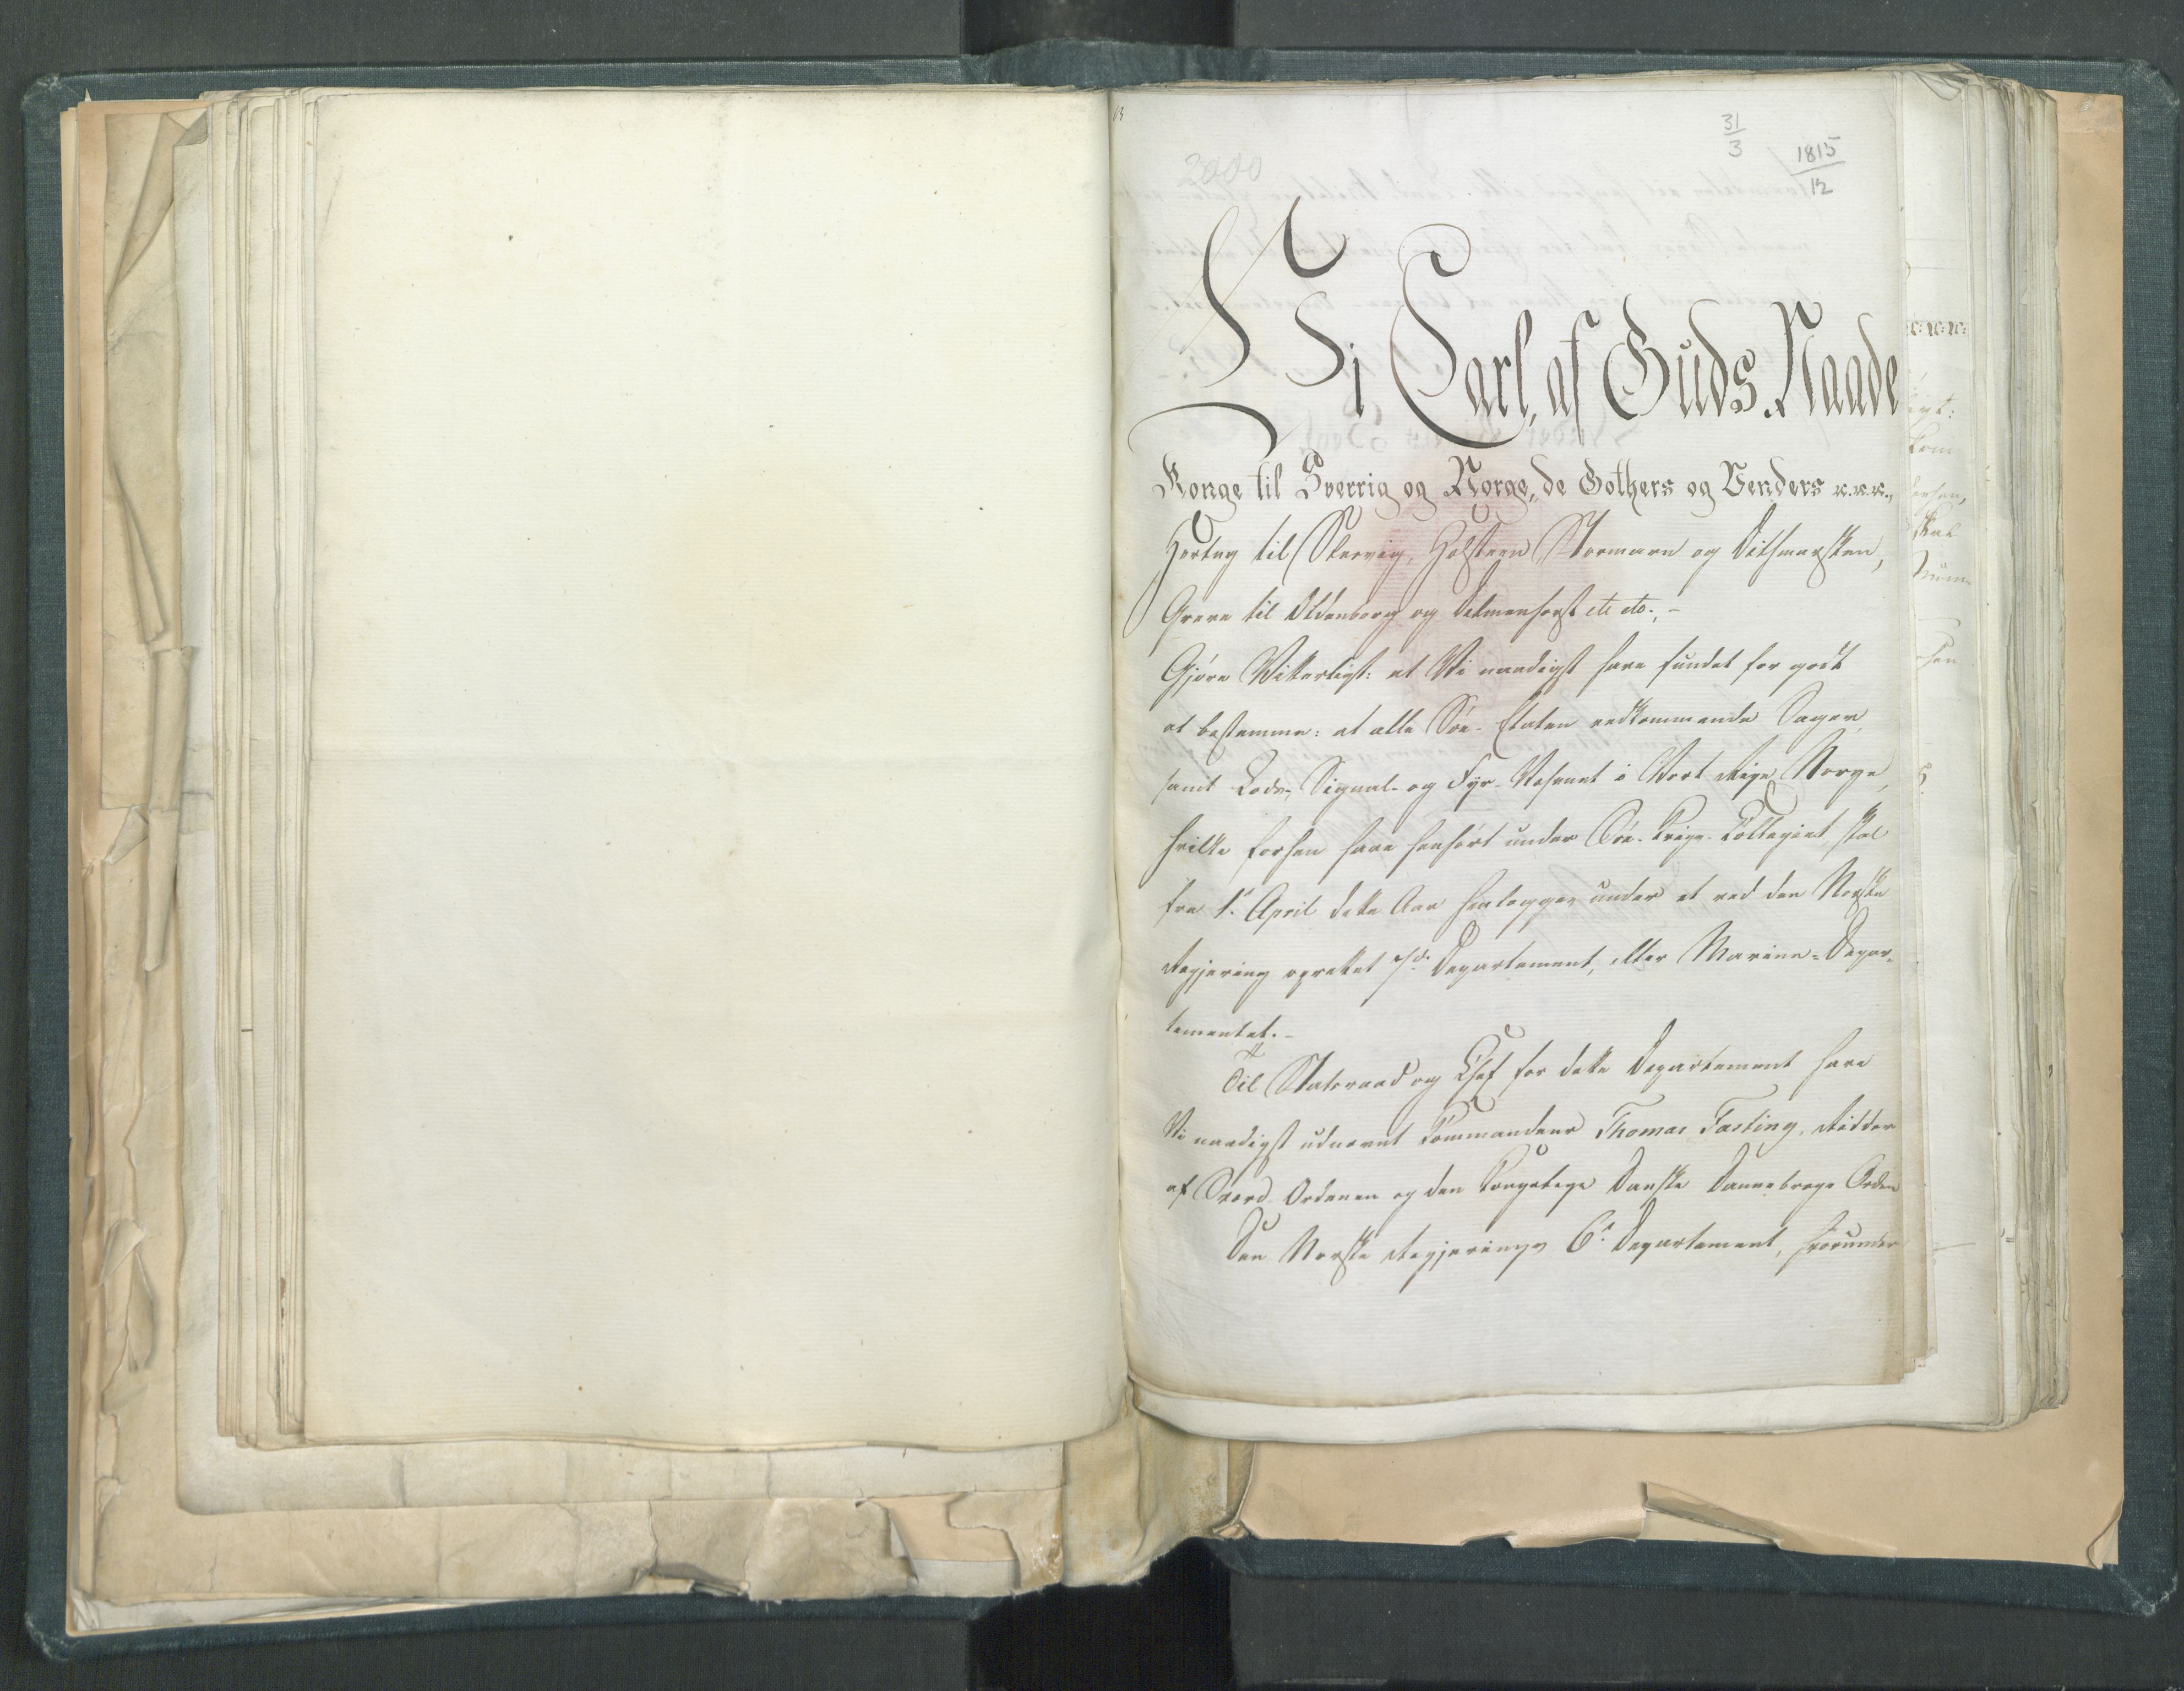 63
2000
31
3
1815
12
Vi Carl, af Guds Naade
Konge til Sverrig og Norge, de Gothers og Venders &c. &c. &c.,
Hertug til Slesvig, Holsteen Stormarn og Dithmarsken,
Greve til Oldenborg og Delmenhorst etc etc., -
Gjøre Vitterligt: at Vi naadigst have fundet for godt
at bestemme: at alle Søe-Etaten vedkommende Sager,
samt Lods-, Signal- og Fyr-Væsenet i Vort Rige Norge,
hvilke forhen have henhørt under Søe-Krigs-Collegiet, skal
fra 1ste April dette Aar henlægges under et ved den Norske
Regjering oprettet 7de Departement, eller Marine-Depar-
tementet.-
Til Statsraad og Chef for dette Departement have
Vi naadigst udnævnt Commandeur Thomas Fasting, Ridder
af Sværd-Ordenen og den Kongelige Danske Dannebrogs Orden
Den Norske Regjerings 6te Departement, hvorunder